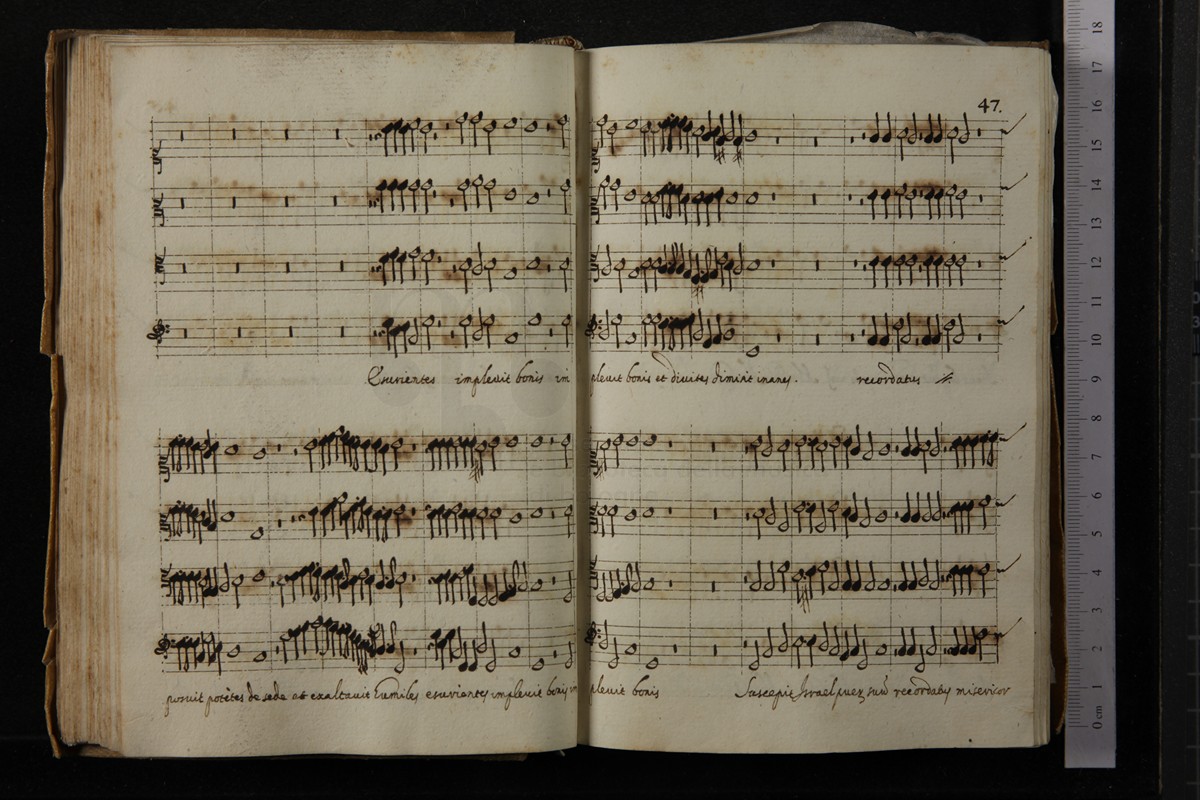 47.
Esurientes impleuit bonis im pleuit bonis et diuites dimisit inanes. recordatus
posuit potẽtes de sede et exaltauit humiles esurientes impleuit bonis im pleuit bonis Suscepit Israel puer suũ recordatus misericor
18
17
16
15
14
13
12
11
10
9
8
7
6
5
4
3
2
1
0 cm